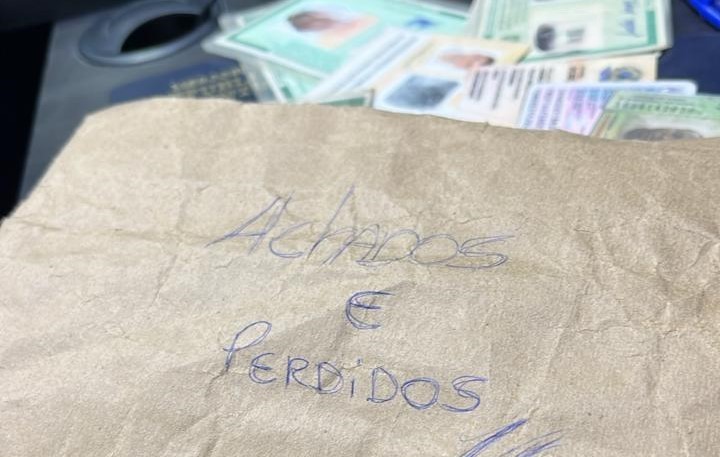 AchADOS
E
PERDiDOS